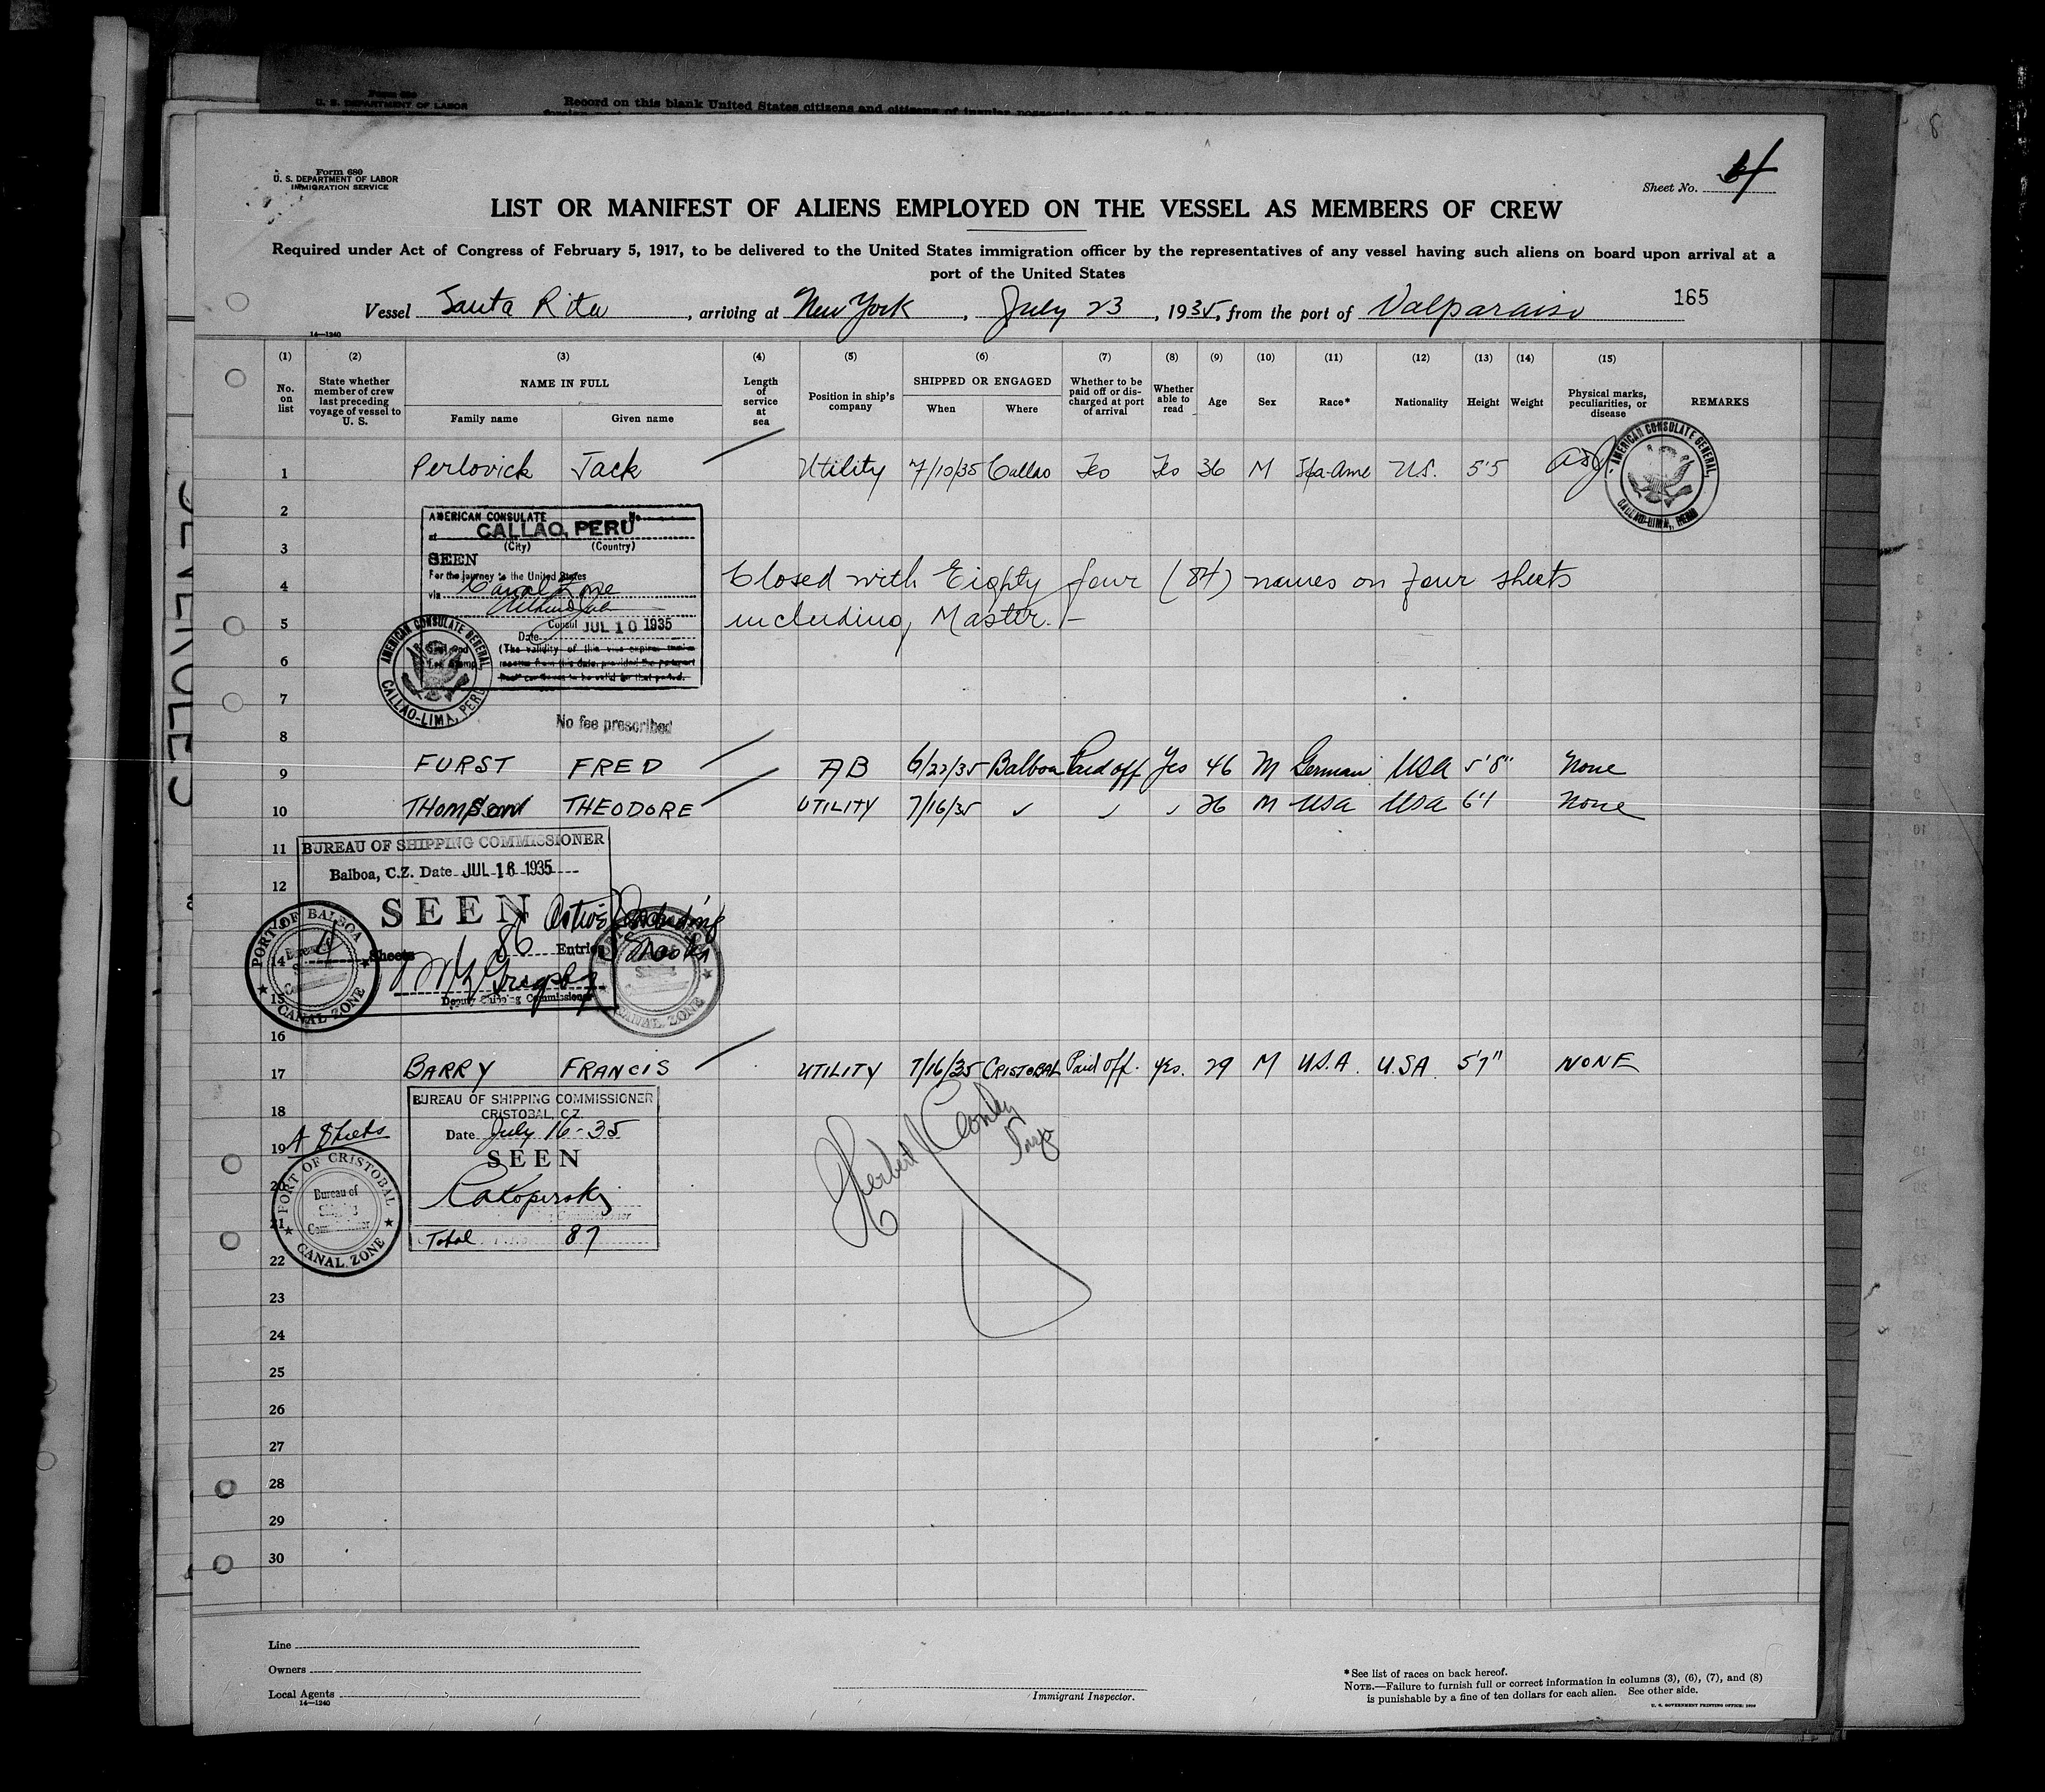 Form 680
U. S. DEPARTMENT OF LABOR
Record on this blank United States citizens and citizens of insular possessions of the United
Form 680
U. S. DEPARTMENT OF LABOR
IMMIGRATION SERVICE
Sheet No. 4
LIST OR MANIFEST OF ALIENS EMPLOYED ON THE VESSEL AS MEMBERS OF CREW
Required under Act of Congress of February 5, 1917, to be delivered to the United States immigration officer by the representatives of any vessel having such aliens on board upon arrival at a
port of the United States
165
Vessel Santa Rita, arriving at New York, July 23, 1935, from the port of Valparaiso
14—1240
(1) (2) (3) (4) (5) (6) (7) (8) (9) (10) (11) (12) (13) (14) (15)
No. on list
State whether member of crew last preceding voyage of vessel to U. S.
NAME IN FULL
Family name Given name
Length of service at sea
Position in ship's company
SHIPPED OR ENGAGED
When Where
Whether to be paid off or discharged at port of arrival
Whether able to read
Age
Sex
Race*
Nationality
Height
Weight
Physical marks, peculiarities, or disease
REMARKS
1 Perlovick Jack Utility 7/10/35 Callao Yes Yes 36 M Spa-Ame U.S. 5'5
AMERICAN CONSULATE GENERAL,
CALLAO-LIMA, PERU
2
AMERICAN CONSULATE No.
at CALLAO, PERU
(City) (Country)
3
SEEN
For the journey to the United States
4
via Canal Zone
Closed with Eighty four (84) names on four sheets
5
including Master.—
Consul
Date JUL 10 1935
Seal and
Fee Stamp
(The validity of this visa expires twelve
months from this date, provided the passport
6
AMERICAN CONSULATE GENERAL,
CALLAO-LIMA, PERU
7
No fee prescribed
8
9 FURST FRED AB 6/22/35 Balboa Paid off Yes 46 M German USA 5'8" None
10 THOMPSON THEODORE UTILITY 7/16/35 ✓ ✓ ✓ 26 M USA USA 6'1 None
11 BUREAU OF SHIPPING COMMISSIONER
12 Balboa, C.Z. Date JUL 16 1935
SEEN
14 4 Sheets 86 Entries
15
Deputy Shipping Commissioner
PORT OF BALBOA
CANAL ZONE
16
17 BARRY FRANCIS UTILITY 7/16/35 CRISTOBAL Paid off. yes. 29 M U.S.A. U.S.A. 5'7" NONE
BUREAU OF SHIPPING COMMISSIONER
18
CRISTOBAL, C.Z.
19 4 Sheets
Date July 16-35
SEEN
20
21
PORT OF CRISTOBAL
Bureau of
Shipping
Commissioner
CANAL ZONE
Total 87
22
23
24
25
26
27
28
29
30
Line
Owners
Local Agents
14—1240
Immigrant Inspector.
*See list of races on back hereof.
NOTE.—Failure to furnish full or correct information in columns (3), (6), (7), and (8)
is punishable by a fine of ten dollars for each alien. See other side.
U. S. GOVERNMENT PRINTING OFFICE